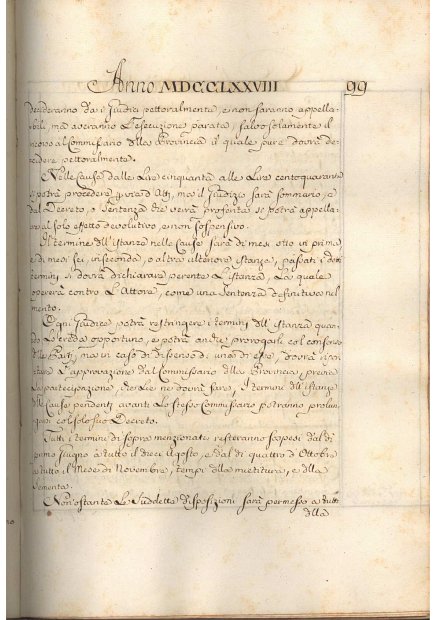 Anno MDCCLXXVIII 99
decideranno da i Giudici pettoralmente, e non saranno appella-
bili, ma averanno l'esecuzione parata, salvo solamente il
ricorso al Commissario della Provincia il quale pure dovrà de-
cidere pettoralmente.
Nelle Cause dalle Lire cinquanta alle Lire centoquaranta
si potrà procedere Atti, ma il Giudizio sarà sommario, e
dal Decreto, o Sentenza che verrà proferita si potrà appella-
re al solo effetto devolutivo, e non sospensivo.
Il termine dell'istanza nelle Cause sarà di mesi otto in prima
e di mesi sei, in seconda, o altra ulteriore istanza, passati i
termini si dovrà dichiarare perenta l'istanza, la quale
opererà contro l'Attore, come una Sentenza definitiva nel
merito.
Ogni Giudice potrà restringere i termini dell'istanza quan-
do lo creda opportuno, e potrà anche prorogarli col consenso
delle Parti, ma in caso di dissenso di una di esse, dovrà
l'approvazione dal Commissario della Provincia, previa
la partecipazione, che le ne dovrà fare, i termini dell'istanze
delle Cause pendenti avanti lo stesso Commissario potranno prolun-
garsi col solo suo Decreto.
Tutti i termini di sopra menzionati resteranno sospesi dal dì
primo Giugno a tutto il dieci Agosto, e dal dì quattro d'Ottobre
a tutto il Mese di Novembre, tempi della mietitura, e della
sementa.
Non'ostante le suddette disposizioni sarà permesso a tutti
della